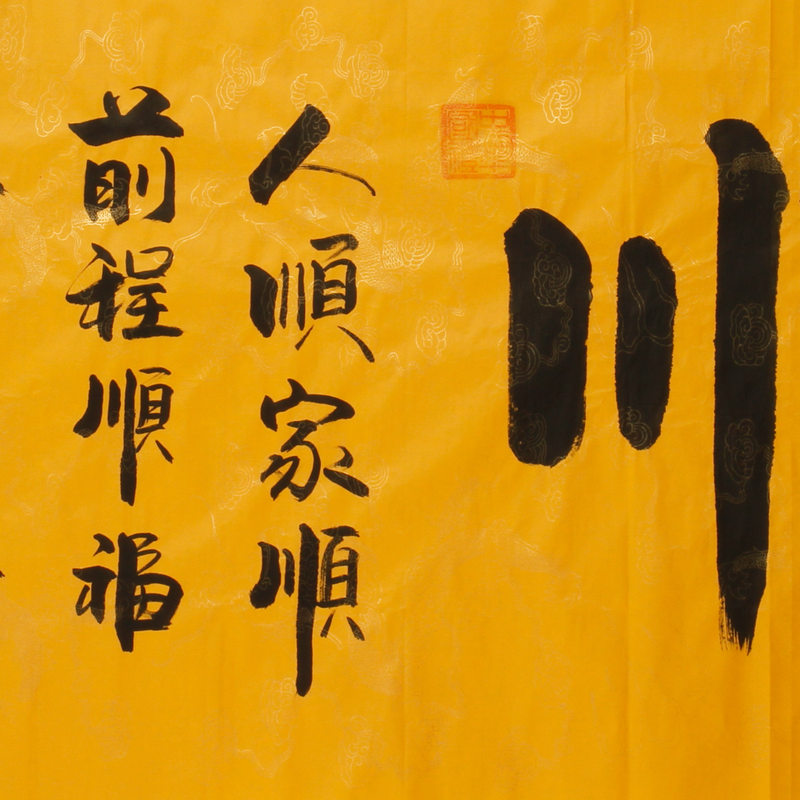 川
人順家順
前程順福